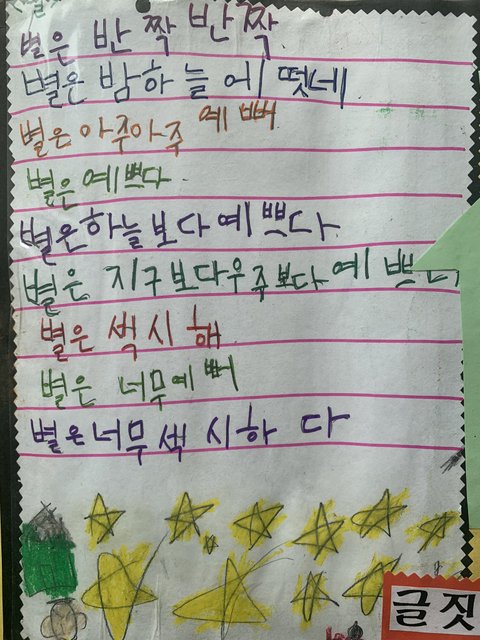 별은 반짝반짝
별은 밤하늘에 떳네
별은 아주아주 예뻐
별은 예쁘다
별은하늘보다예쁘다
별은 지구보다우주보다예쁘다
별은 섹시해
별은 너무예뻐
별은너무섹시하다
글짓